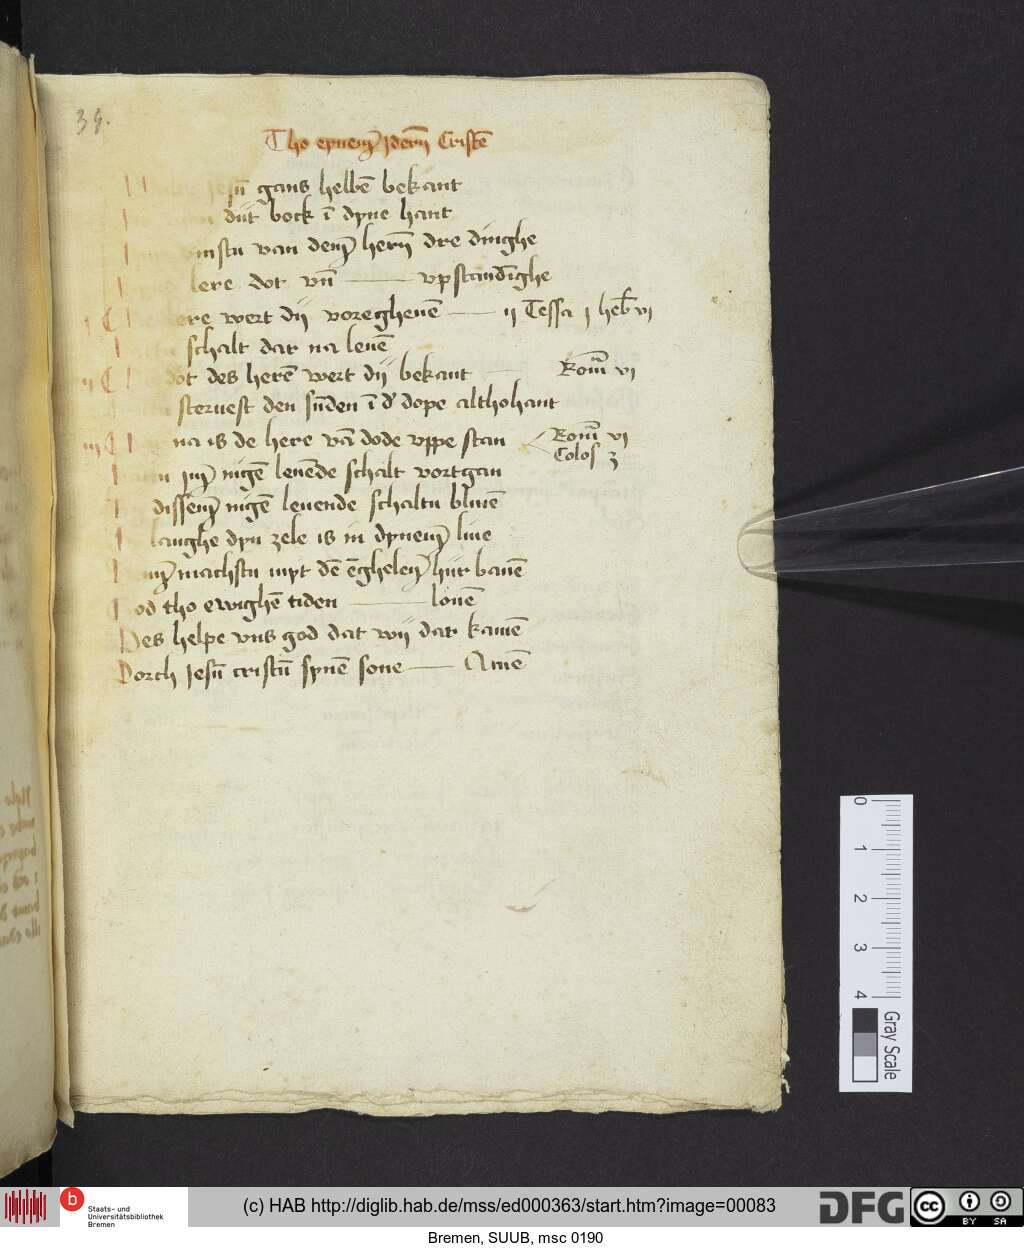 39.
Tho eynem̄ jderm̄ Cristē
Jesū gans helbē bekant
dūt bock ī dyne hant
vinstu van dem̄ hern̄ dre dinghe
lere dot vn̄ —— vpstandīghe
ere wert dij voregheuē —— ij Tessa j heb̄ vi
schalt dar na leuē
dot des herē wert dij bekant —— Rom̄ vi
steruest den sūden ī d' dope althohant
na is de here vā dode vppe stan Rom̄ vi
Colos 3
jm̄ nigē leuēde schalt vortgan
dissem̄ nigē leuende schaltu bliuē
langhe dyn zele is in dynem̄ liue
machstu myt dē ēghelen̄ hūt bauē
od tho ewighē tiden —— louē
Des helpe vns god dat wij dar kamē
Dorch Jesū cristū synē sone —— Amē
0 1 2 3 4
Gray Scale
Staats- und
Universitätsbibliothek
Bremen
(c) HAB http://diglib.hab.de/mss/ed000363/start.htm?image=00083
DFG
cc BY SA
Bremen, SUUB, msc 0190